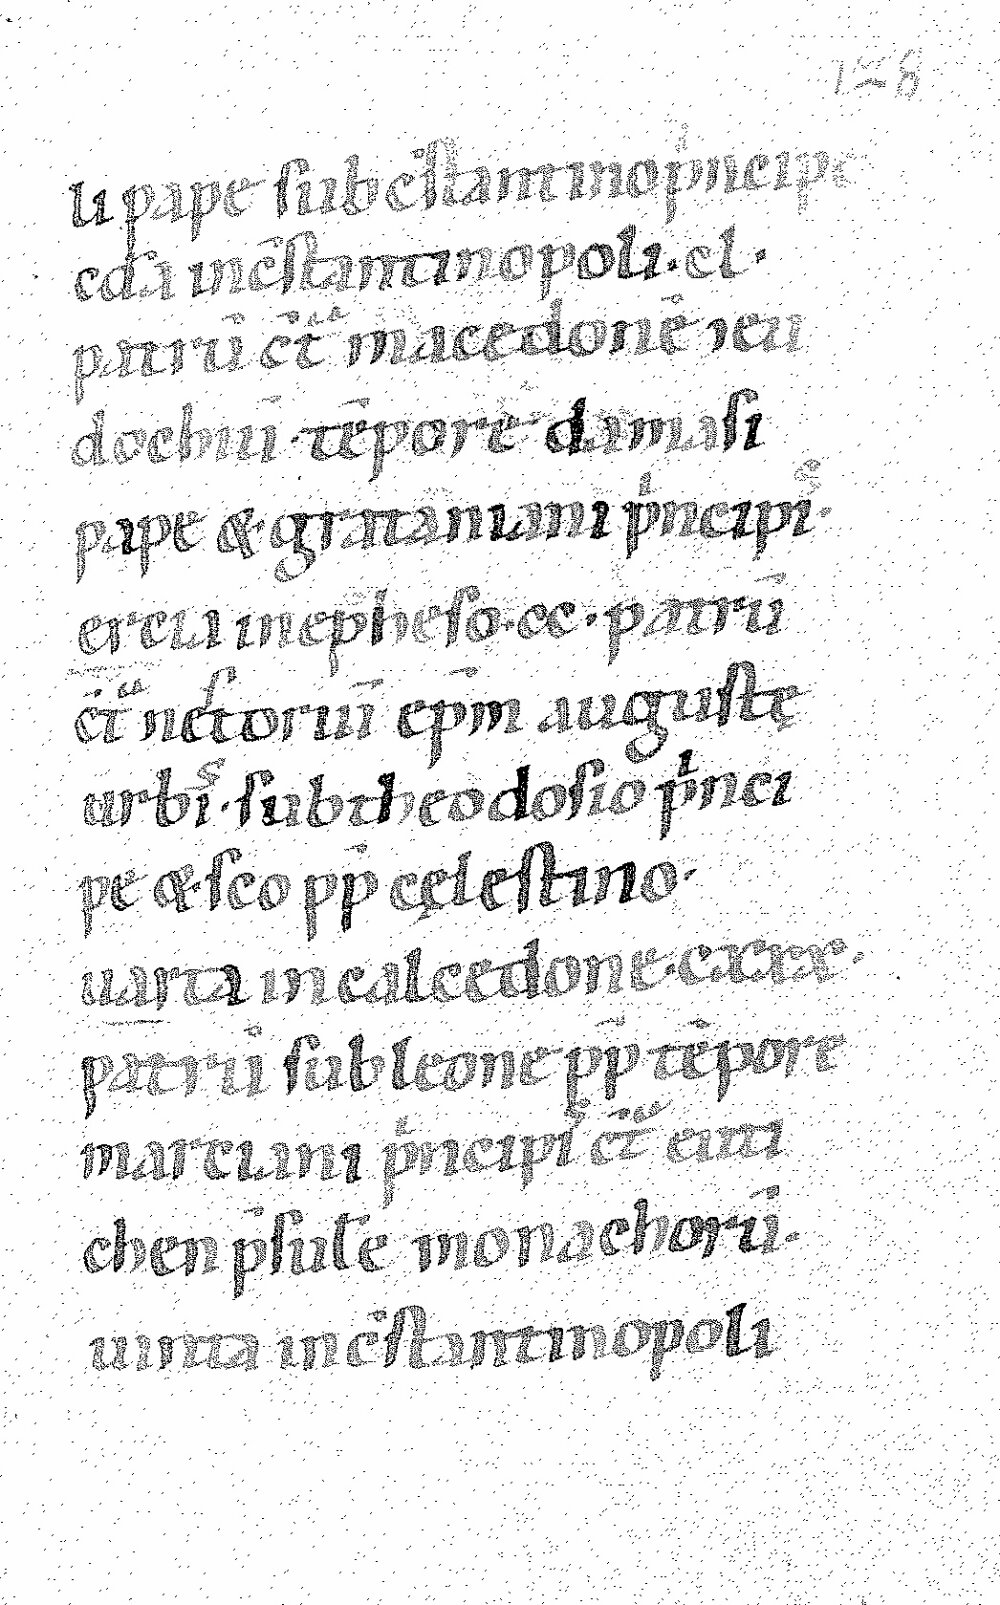 128
li pape sub c̄stantino pͥncipe
cd̄a in c̄stantinopoli· cl·
patrū c̄tͣ macedoneͫ ꝛeu
dochiū· tēpore damasi
pape & gratani ani pͥncipiˢ·
ercia in epheso· cc· patrū
c̄tͣ neſtoriū ep̄m auguste̜
urbiˢ· sub theodosio pͥnci
pe & sc̄o pp̄ ce̜lestino·
uarta in calcedone· cxxx·
patrū sub leone pp̄ tēpore
marciani pͥncipiˢ c̄tͣ euti
chen p̄sulē monachorū·
uinta in c̄stantinopoli